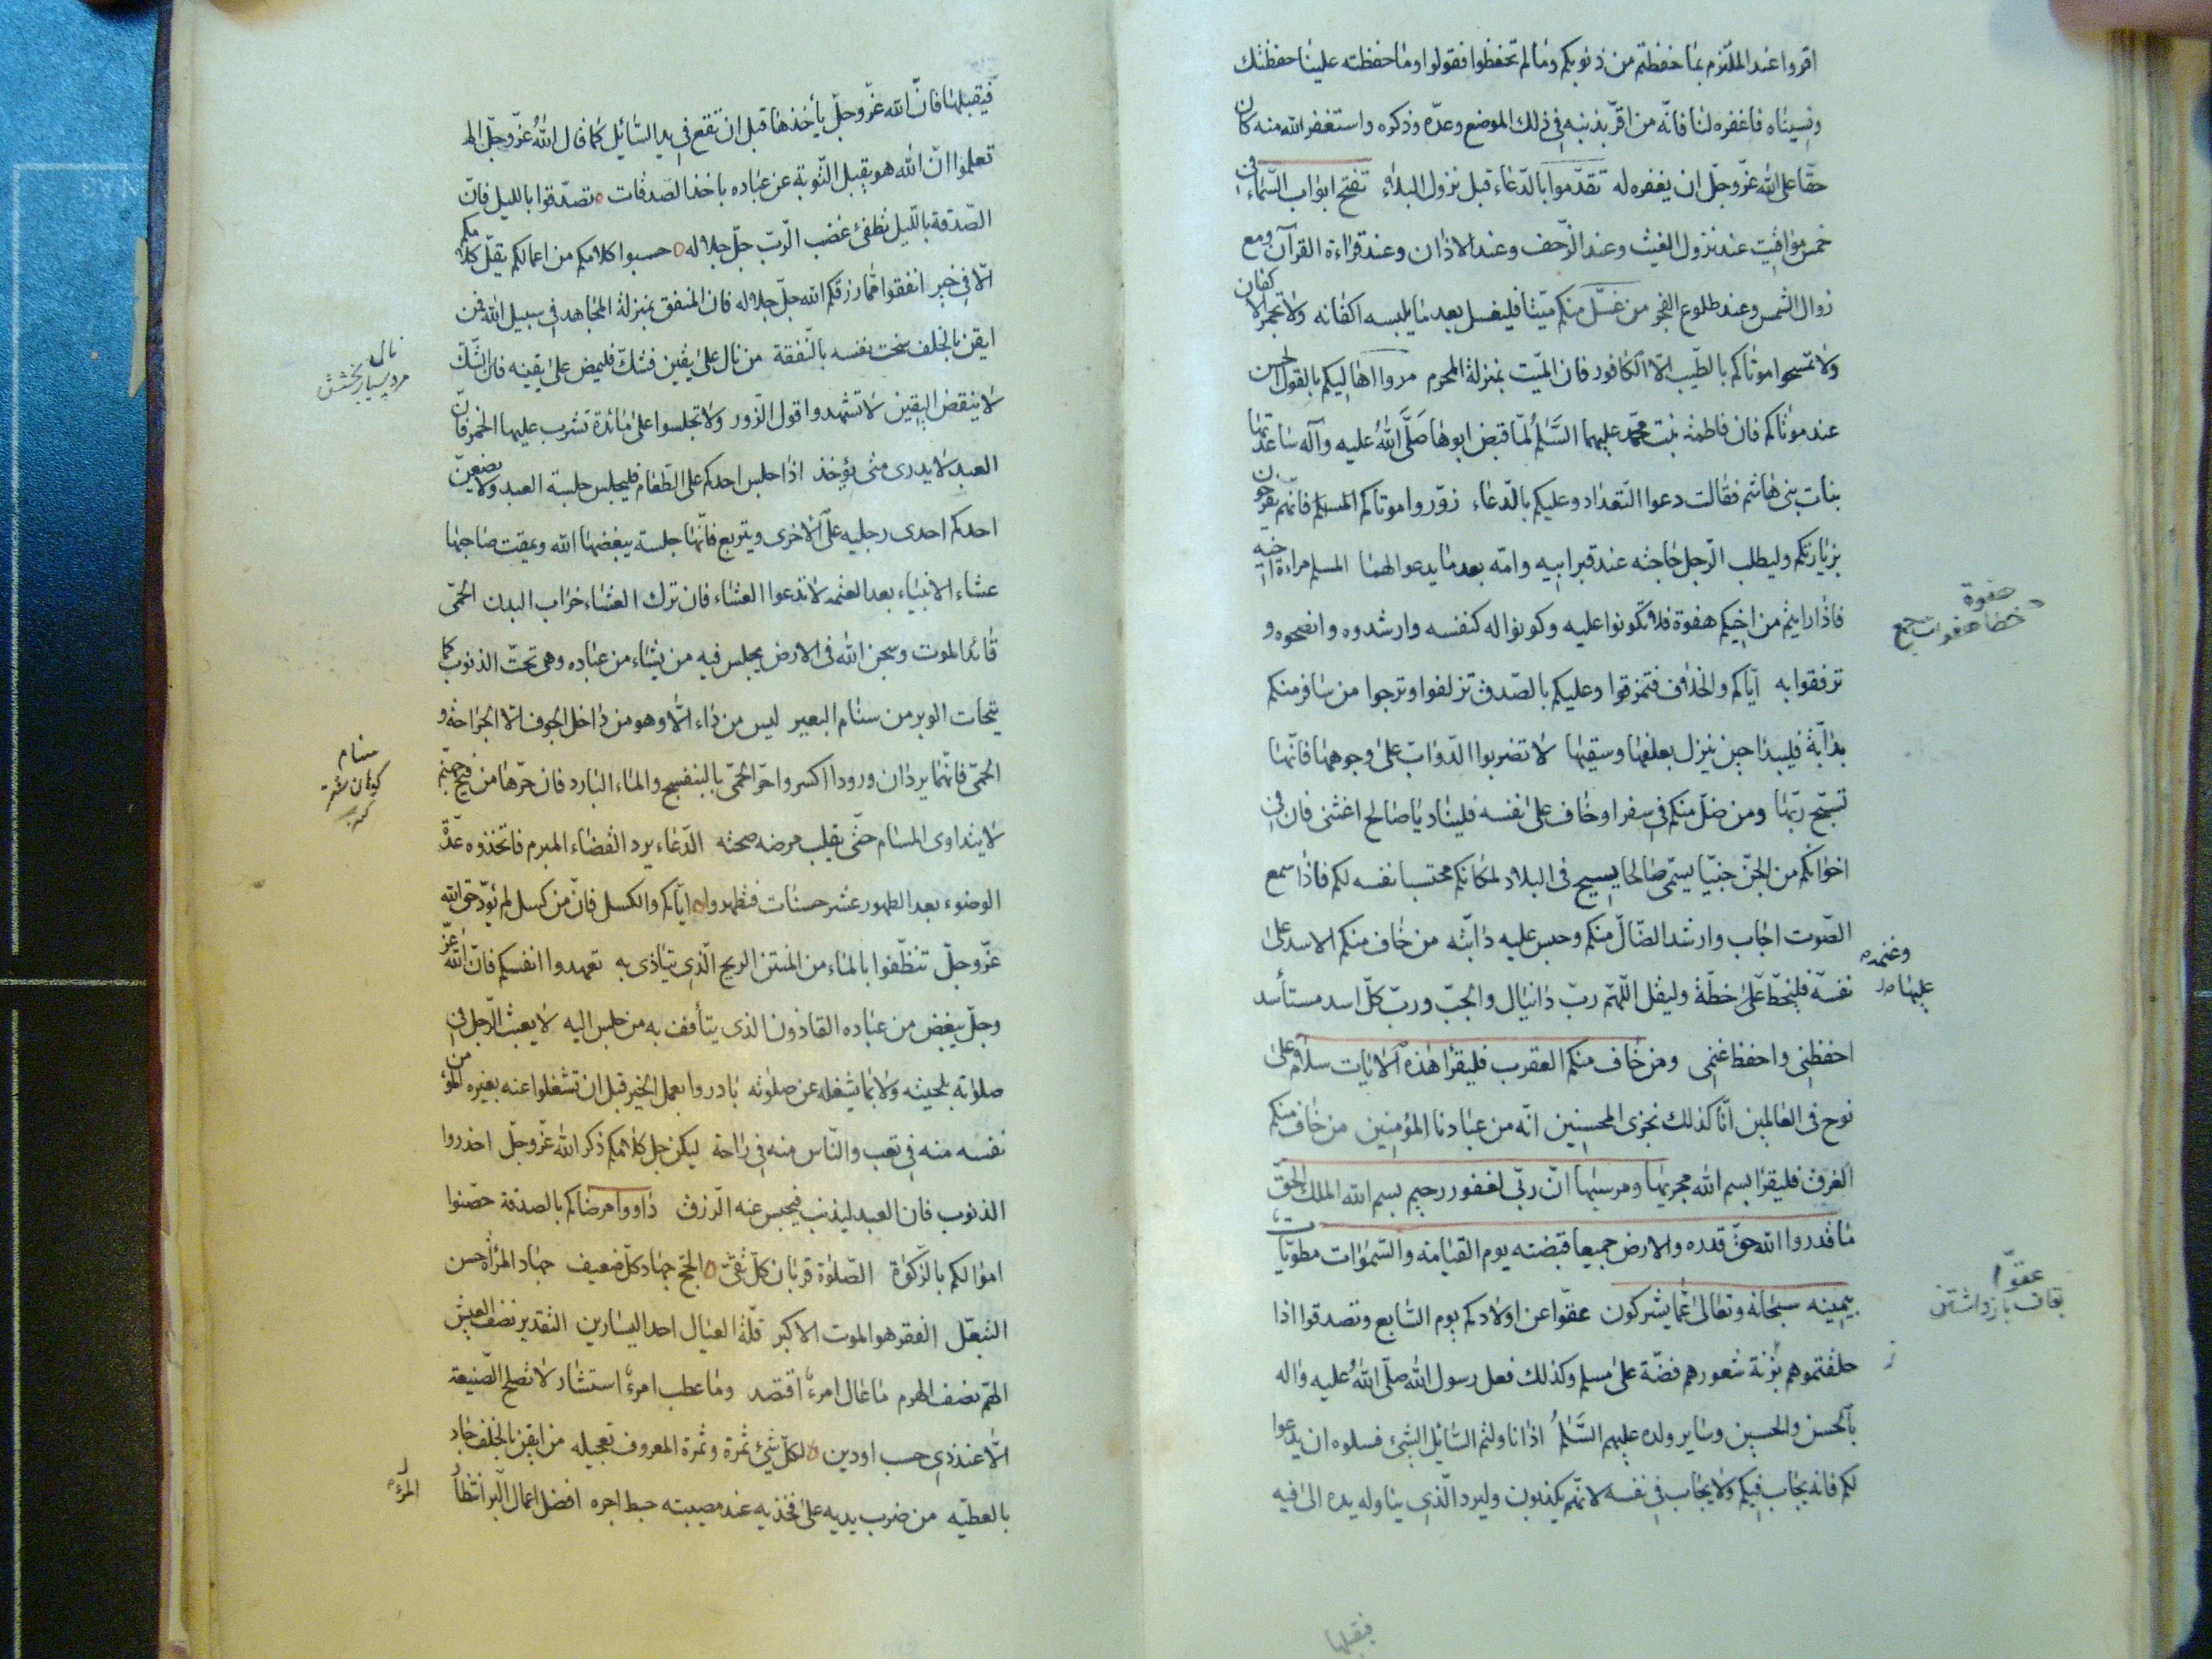 اقروا عند الملتزم بما حفظتم من ذنوبكم وما لم تحفظوا فقولوا وما حفظته علينا حفظتك
ونسيناه فاغفره لنا فانّه من اقرّ بذنبه في ذلك الموضع وعدّه وذكره واستغفر الله منه كان
حقّا على الله عزّ وجلّ ان يغفره له تقدّموا بالدّعاء قبل نزول البلاء تفتح ابواب السّماء في
خمس مواقيت عند نزول الغيث وعند الزّحف وعند الاذان وعند قراءة القرآن ومع
زوال الشمس وعند طلوع الفجر من غسّل منكم ميّتا فليغسل بعد ما يلبسه اكفانه ولا تجمروا الاكفان
ولا تمسحوا موتاكم بالطّيب الّا الكافور فان الميّت بمنزلة المحرم مروا اهاليكم بالقول الحسن
عند موتاكم فان فاطمة بنت محمّد عليهما السَّلمُ لمّا قبض ابوها صَلَّى اللهُ عليه وآله ساعدتها
بنات بنى هاشم فقالت دعوا التّعداد وعليكم بالدّعاء زوّروا موتاكم المسلم فانّهم يفرحون
بزيارتكم وليطلب الرّجل حاجته عند قبر ابيه وامّه بعد ما يدعو لهما المسلم مراءة اخيه
فاذا رايتم من اخيكم هفوة فلا تكونوا عليه وكونوا له كنفسه وارشدوه وانصحوه و
هفوة
خطا هفوات جمع
ترفقوا به ايّاكم والخلاف فتمزقوا وعليكم بالصّدق تزلفوا وترجوا من سافر منكم
بدابّة فليبدا حين ينزل بعلفها وسقيها لا تضربوا الدّوابّ على وجوهها فانّها
تسبّح ربّها ومن ضلّ منكم في سفر او خاف على نفسه فليناد يا صالح اغثنى فان في
اخوانكم من الجنّ جنيّا يسمّى صالحا يسيح في البلاد لمكانكم محتسبا نفسه لكم فاذا سمع
الصّوت اجاب وارشد الضّالّ منكم وحبس عليه دابّته من خاف منكم الاسد على
وغنمه
نفسه فليخطّ عليها خطّة وليقل اللّهمّ ربّ دانيال والجبّ وربّ كلّ اسد مستأسد
احفظنى واحفظ غنمى ومن خاف منكم العقرب فليقرأ هذه الايات سلام على
نوح في العالمين انّا كذلك نجزى المحسنين انّه من عبادنا المؤمنين من خاف منكم
الغرق فليقرا بسم الله مجريها ومرسيها انّ ربّى لغفور رحيم بسم الله الملك الحقّ
ما قدروا الله حقّ قدره والارض جميعا قبضته يوم القيامة والسّموات مطويّات
بيمينه سبحانه وتعالى عمّا يشركون عقّوا عن اولادكم يوم السّابع وتصدقوا اذا
عقّوا
بقاف بازداشتن
حلقتموهم بزنة شعورهم فضّة على مسلم وكذلك فعل رسول الله صلّى اللهُ عليه واله
بالحسن والحسين وساير ولده عليهم السَّلمُ اذا ناولتم السّائل الشئ فسلوه ان يدعوا
لكم فانه يجاب فيكم ولا يجاب في نفسه لانّهم يكذبون وليرد الّذي يناوله يده الى فيه
فيقبلها
فيقبلها فانّ الله عزّ وجلّ يأخذها قبل ان تقع في يد السّائل كما قال اللهُ عزّ وجلّ الم
تعلموا انّ الله هو يقبل التّوبة عن عباده ياخذ الصّدقات تصدّقوا بالليل فانّ
الصّدقة باللّيل تطفئ غضب الرّبّ جلّ جلاله حسبوا كلامكم من اعمالكم يقلّ كلامكم
الّا في خير انفقوا ممّا رزقكم الله جلّ جلاله فان المنفق بمنزلة المجاهد في سبيل الله فمن
ايقن بالخلف سخت نفسه بالنّفقة من نال على يقين فشكّ فليمض على يقينه فان الشّكّ
نال
مرد بسيار بخشش
لا ينقض اليقين لا تشهدوا قول الزّور ولا تجلسوا على مائدة تشرب عليها الخمر فانّ
العبد لا يدرى متى يؤخذ اذا جلس احدكم على الطّعام فليجلس جلسة العبد ولا يضعنّ
احدكم احدى رجليه على الاخرى ويتربع فانّها جلسة يبغضها الله ويمقت صاحبها
عشاء الانبياء بعد العتمة لا تدعوا العشاء فان ترك العشاء خراب البدن الحمّى
قائد الموت وسجن الله في الارض يحبس فيه من يشاء من عباده وهى تحتّ الذنوب كما
يتحات الوبر من سنام البعير ليس من داء الّا وهو من داخل الجوف الّا الجراحة و
سنام
كوهان شتر
الحمّى فانّهما يردان ورودا اكسروا حرّ الحمّى بالبنفسج والماء البارد فان حرّها من فيح جهنّم
لا يتداوى المسلم حتّى يغلب مرضه صحته الدّعاء يرد القضاء المبرم فاتخذوه عدّة
الوضوء بعد الطهور عشر حسنات فتطهروا ايّاكم والكسل فانّ من كسل لم يؤدّ حق الله
عزّ وجلّ تنظّفوا بالماء من المنتن الريح الّذى يتاذى به تعهدوا انفسكم فانّ الله عزّ
وجلّ يبغض من عباده القاذورة الذى يتأفف به من جلس اليه لا يعبث الرّجل في
صلوته بلحيته ولا بما يشغله عن صلوته بادروا بعمل الخير قبل ان تشغلوا عنه بغيره المؤمن
نفسه منه في تعب والنّاس منه في راحة ليكن جل كلامكم ذكر الله عزّ وجلّ احذروا
الذنوب فان العبد ليذنب فيحبس عنه الرّزق داووا مرضاكم بالصدقة حصّنوا
اموالكم بالزّكوة الصّلوة قربان كلّ تقىّ الحجّ جهاد كلّ ضعيف جهاد المرأة حسن
التبعّل الفقر هو الموت الاكبر قلّة العيال احد اليسارين التقدير نصف العيش
الهمّ نصف الهرم ما عال امرء اقتصد وما عطب امرء استشار لا تصلح الصّنيعة
الّا عند ذى حسب او دين لكلّ شئ ثمرة وثمرة المعروف تعجيله من ايقن بالخلف جاد
بالعطيّه من ضرب يديه على فخذيه عند مصيبته حبط اجره افضل اعمال المرء انتظار